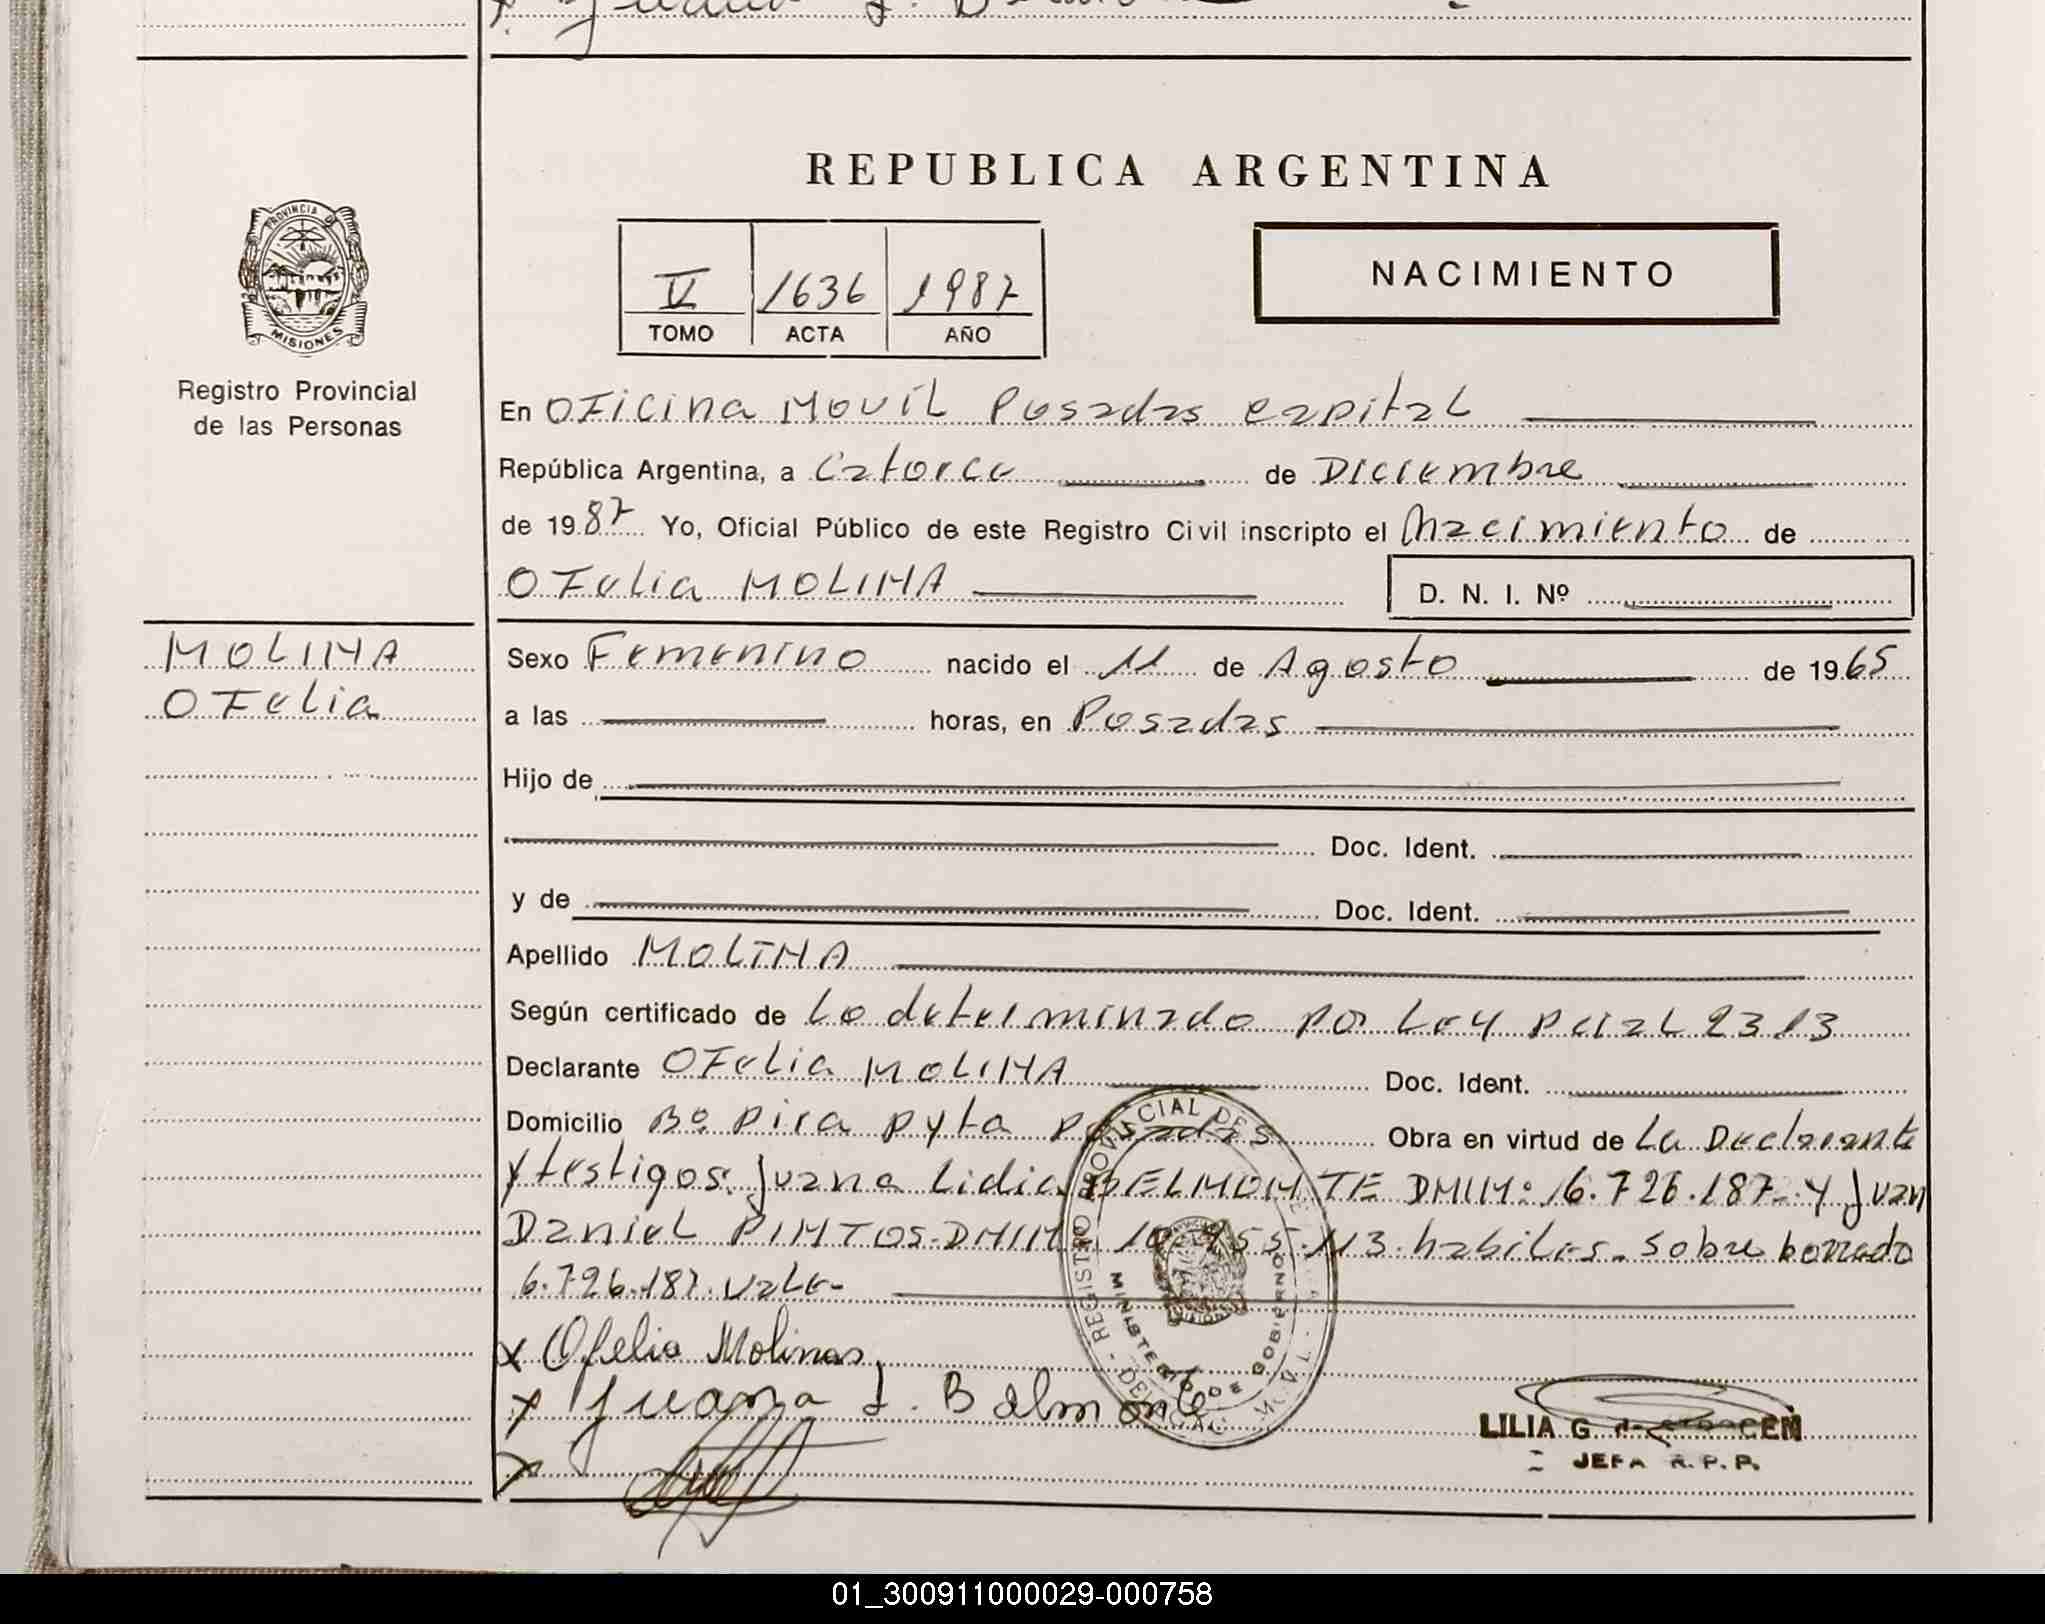 Juana L. Belmonte
REPUBLICA ARGENTINA
PROVINCIA DE
MISIONES
Registro Provincial
de las Personas
V 1636 1987
TOMO ACTA AÑO
NACIMIENTO
En OFicina MoviL Posadas capitaL
República Argentina, a Catorce de Diciembre
de 1987 Yo, Oficial Público de este Registro Civil inscripto el Nacimiento de
OFelia MOLINA D. N. I. Nº
MOLINA
OFelia
Sexo Femenino nacido el 11 de Agosto de 1965
a las horas, en Posadas
Hijo de
Doc. Ident.
y de Doc. Ident.
Apellido MOLINA
Según certificado de Lo determinado por Ley pciaL 2313
Declarante OFelia MOLINA Doc. Ident.
Domicilio Bº. pira pyta posadas Obra en virtud de La Declarante
y testigos: Juana Lidia BELMONTE DNIM: 6.726.187-. y Juan
DanieL PINTOS-DNIM 10.455.113. habiles-. sobre borrado
6.726.187. vaLe-
x Ofelia Molinas
x Juana L. Belmonte
x
REGISTRO PROVINCIAL DE
MINISTERIO DE GOBIERNO
LILIA G. de
JEFA R.P.P.
01_300911000029-000758